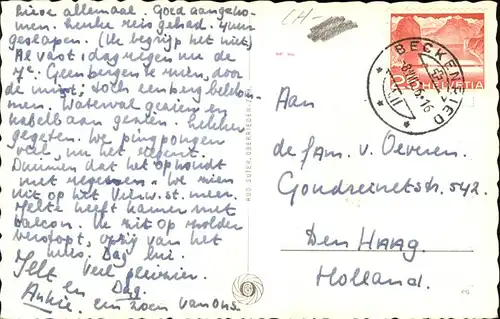 Liese allemaal. Goed aangeko-
men. Leuke reis gehad. 4 uur
geslapen. (Ik begrijp het niet)
Al vast 1 dag regen nu de
2e. Geen bergen te zien, door
de mist; toch een berg beklom-
men. Waterval gezien en
kabelbaan gezien. Lekker
gegeten. We pingpongen
veel, nu het regent.
Duimen dat het ophoudt
met regenen. We zien
uit op het Vierw.st. meer.
Jelte heeft kamer met
balcon. Ik zit op zolder
verstopt, opzij van het
huis. Dag lui.
Jelt Veel plezier.
en Dag.
Ankie. een zoen van ons
RUD. SUTER, OBERRIEDEN-ZCH.
CH-
BECKENRIED
HELVETIA
Aan
de fam. v. Oeveren.
Goudreinetstr. 542.
Den Haag
Holland.